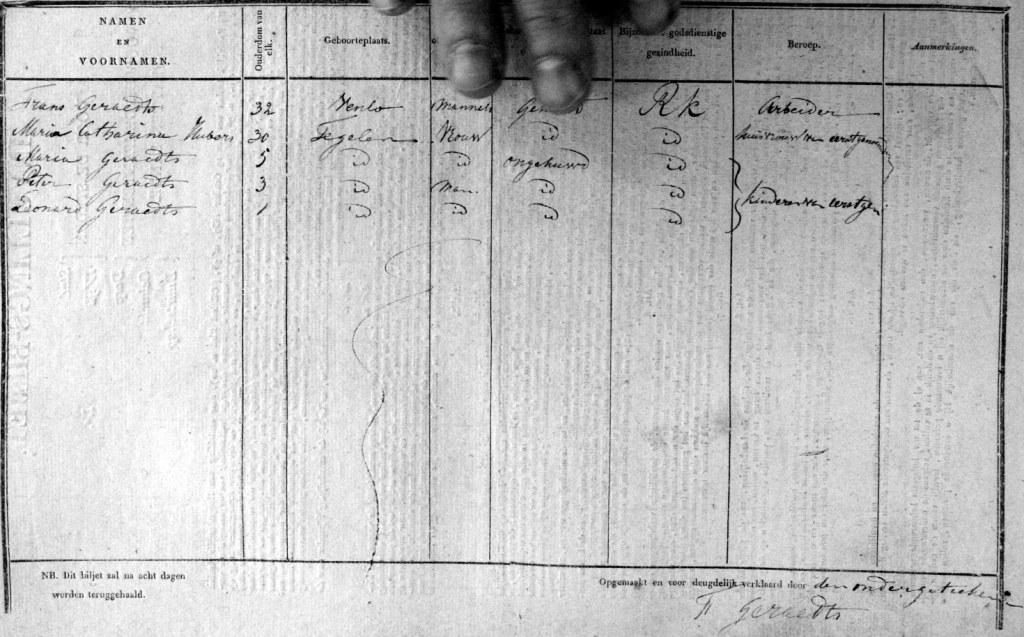 NAMEN EN VOORNAMEN. Ouderdom van elk. Geboorteplaats. godsdienstige gezindheid. Beroep. Aanmerkingen.
Frans Geraedts 32 Venlo Mannel. R k Arbeider
Maria Catharina Hubers 30 Tegelen Vrouw id id huisvrouw van eerstgen
Maria Geraedts 5 id id ongehuwd id
Peter Geraedts 3 id Man. id id kinderen van eerstgen
Leonard Geraedts 1 id id id id
NB. Dit biljet zal na acht dagen
worden teruggehaald.
Opgemaakt en voor deugdelijk verklaard door den ondergeteekende
F Geraedts